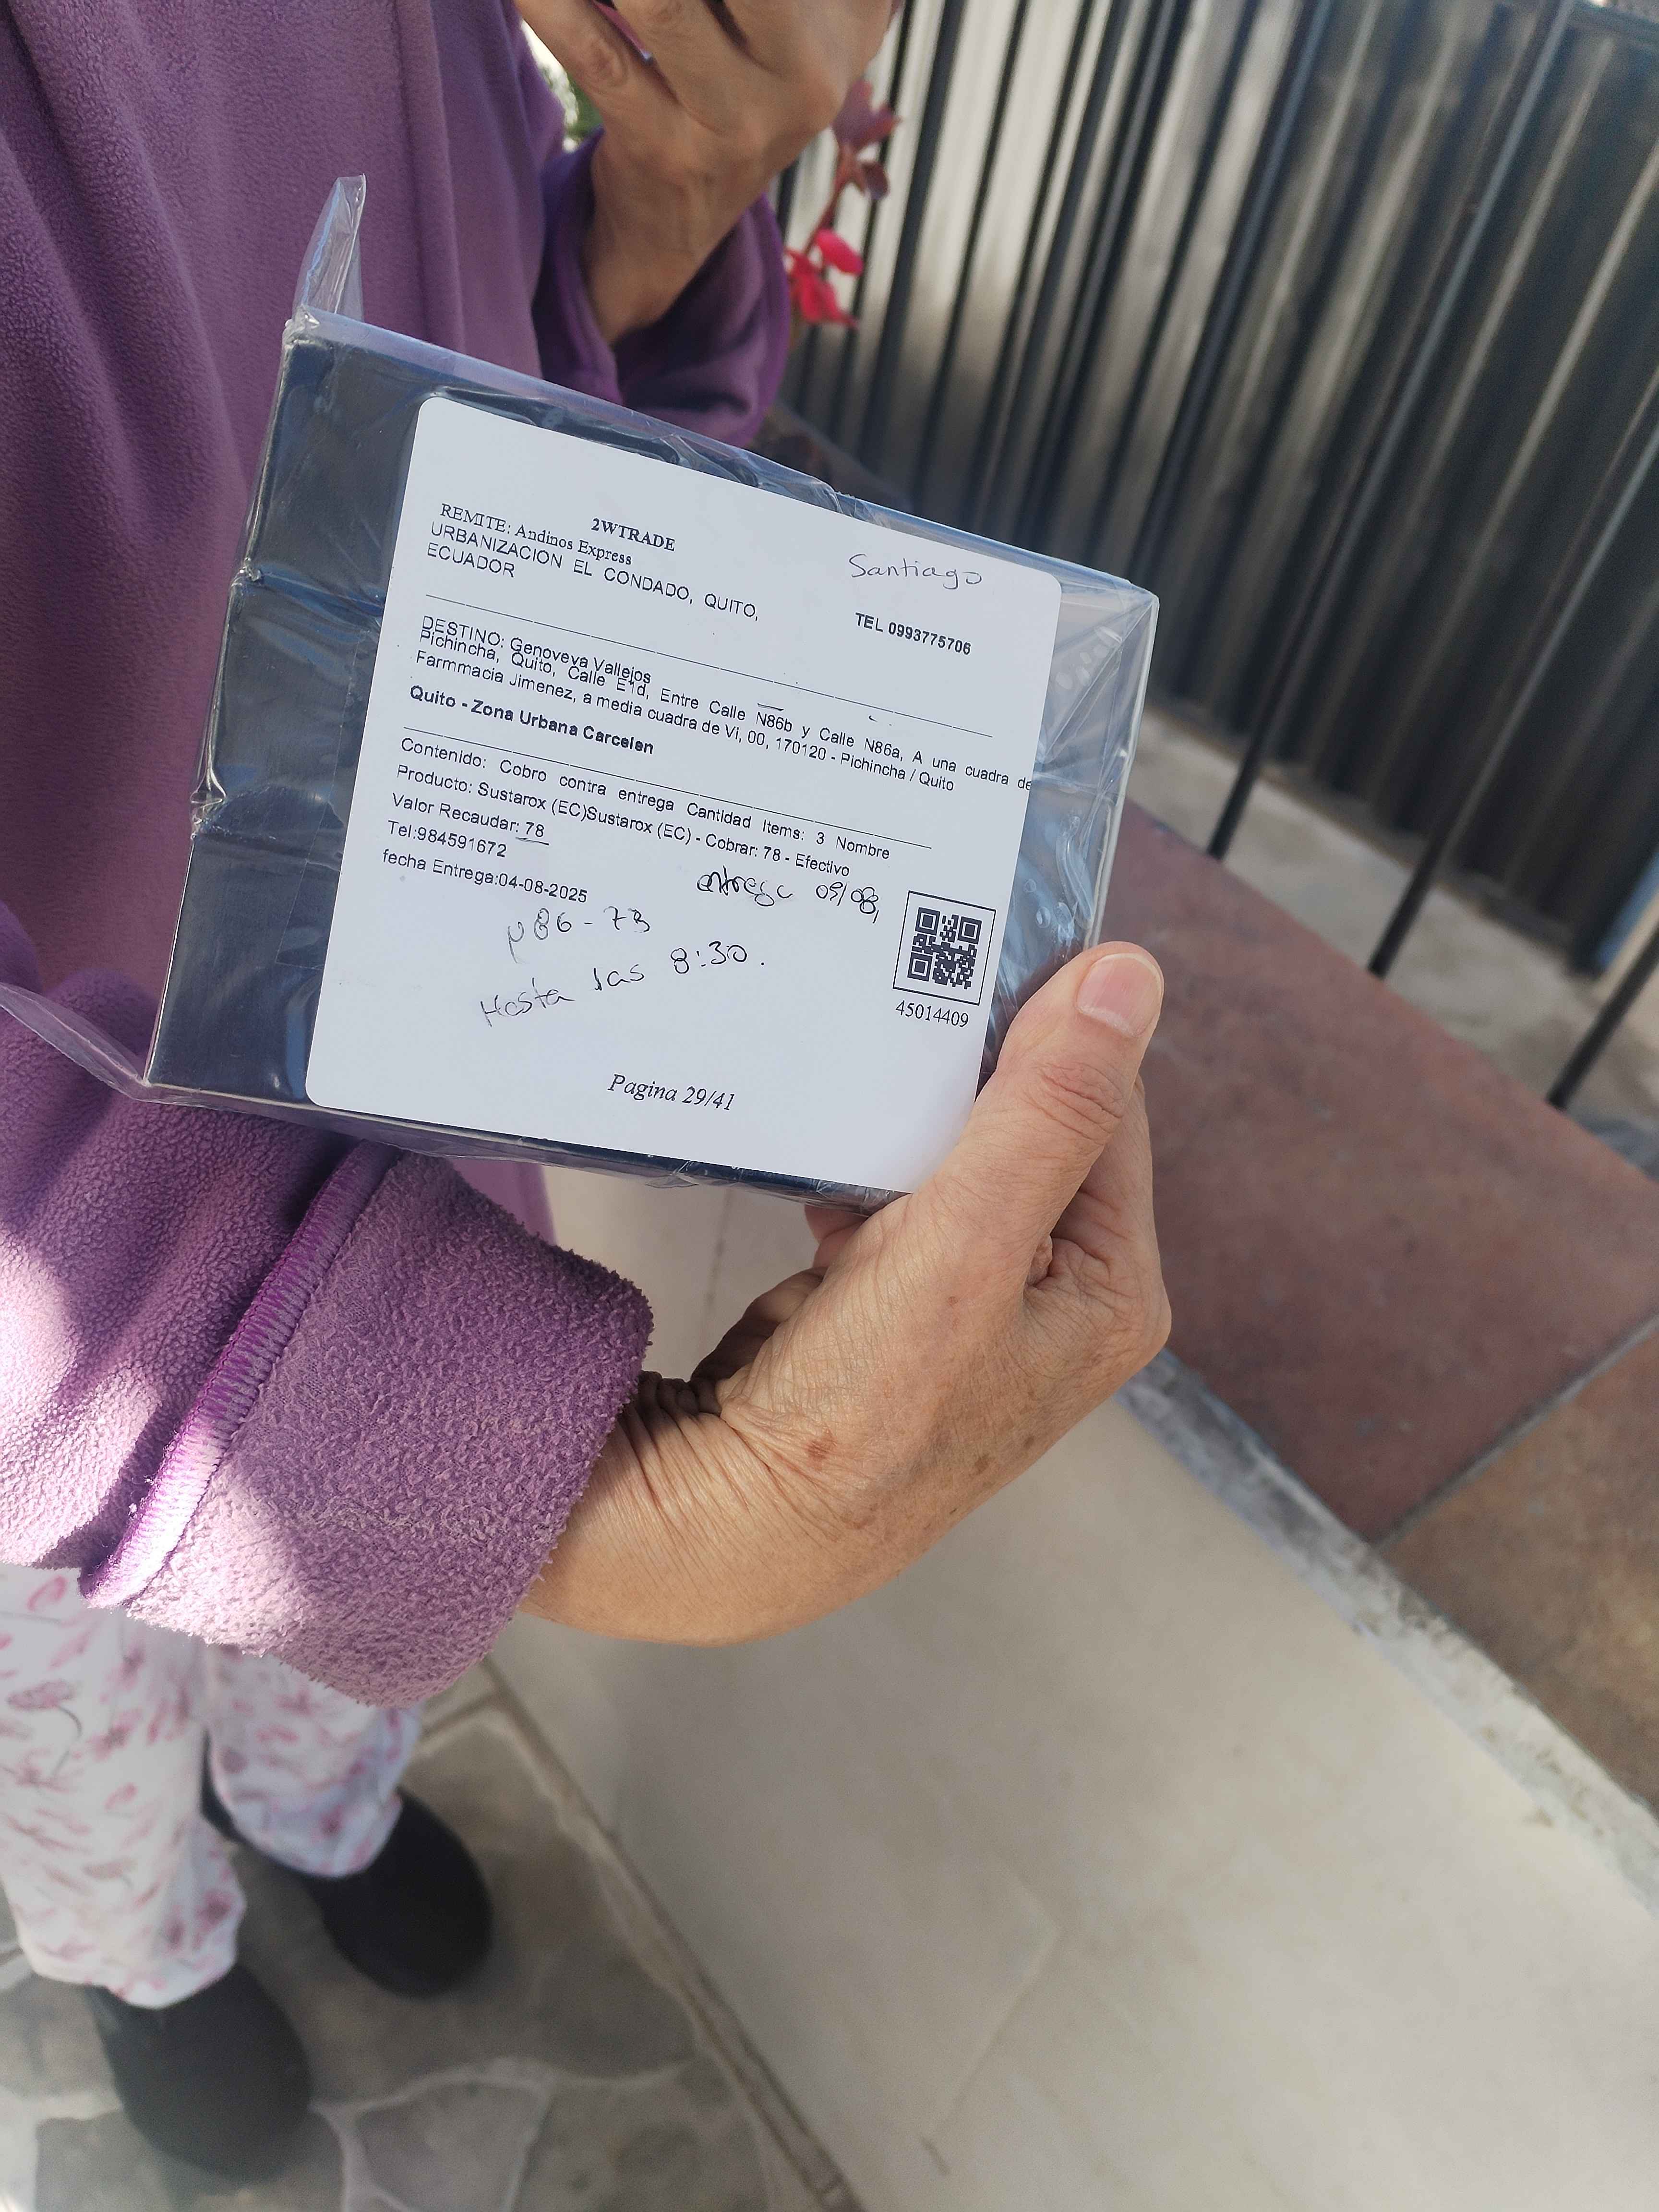 2WTRADE
REMITE: Andinos Express
URBANIZACION EL CONDADO, QUITO,
ECUADOR
Santiago
TEL 0993775706
DESTINO: Genoveva Vallejos
Pichincha, Quito, Calle E1d, Entre Calle N86b y Calle N86a, A una cuadra de
Farmmacia Jimenez, a media cuadra de Vi, 00, 170120 - Pichincha / Quito
Quito - Zona Urbana Carcelen
Contenido: Cobro contra entrega Cantidad Items: 3 Nombre
Producto: Sustarox (EC)Sustarox (EC) - Cobrar: 78 - Efectivo
Valor Recaudar: 78
Tel:984591672
fecha Entrega:04-08-2025
entrega 09/08,
N86-73
Hasta las 8:30.
45014409
Pagina 29/41